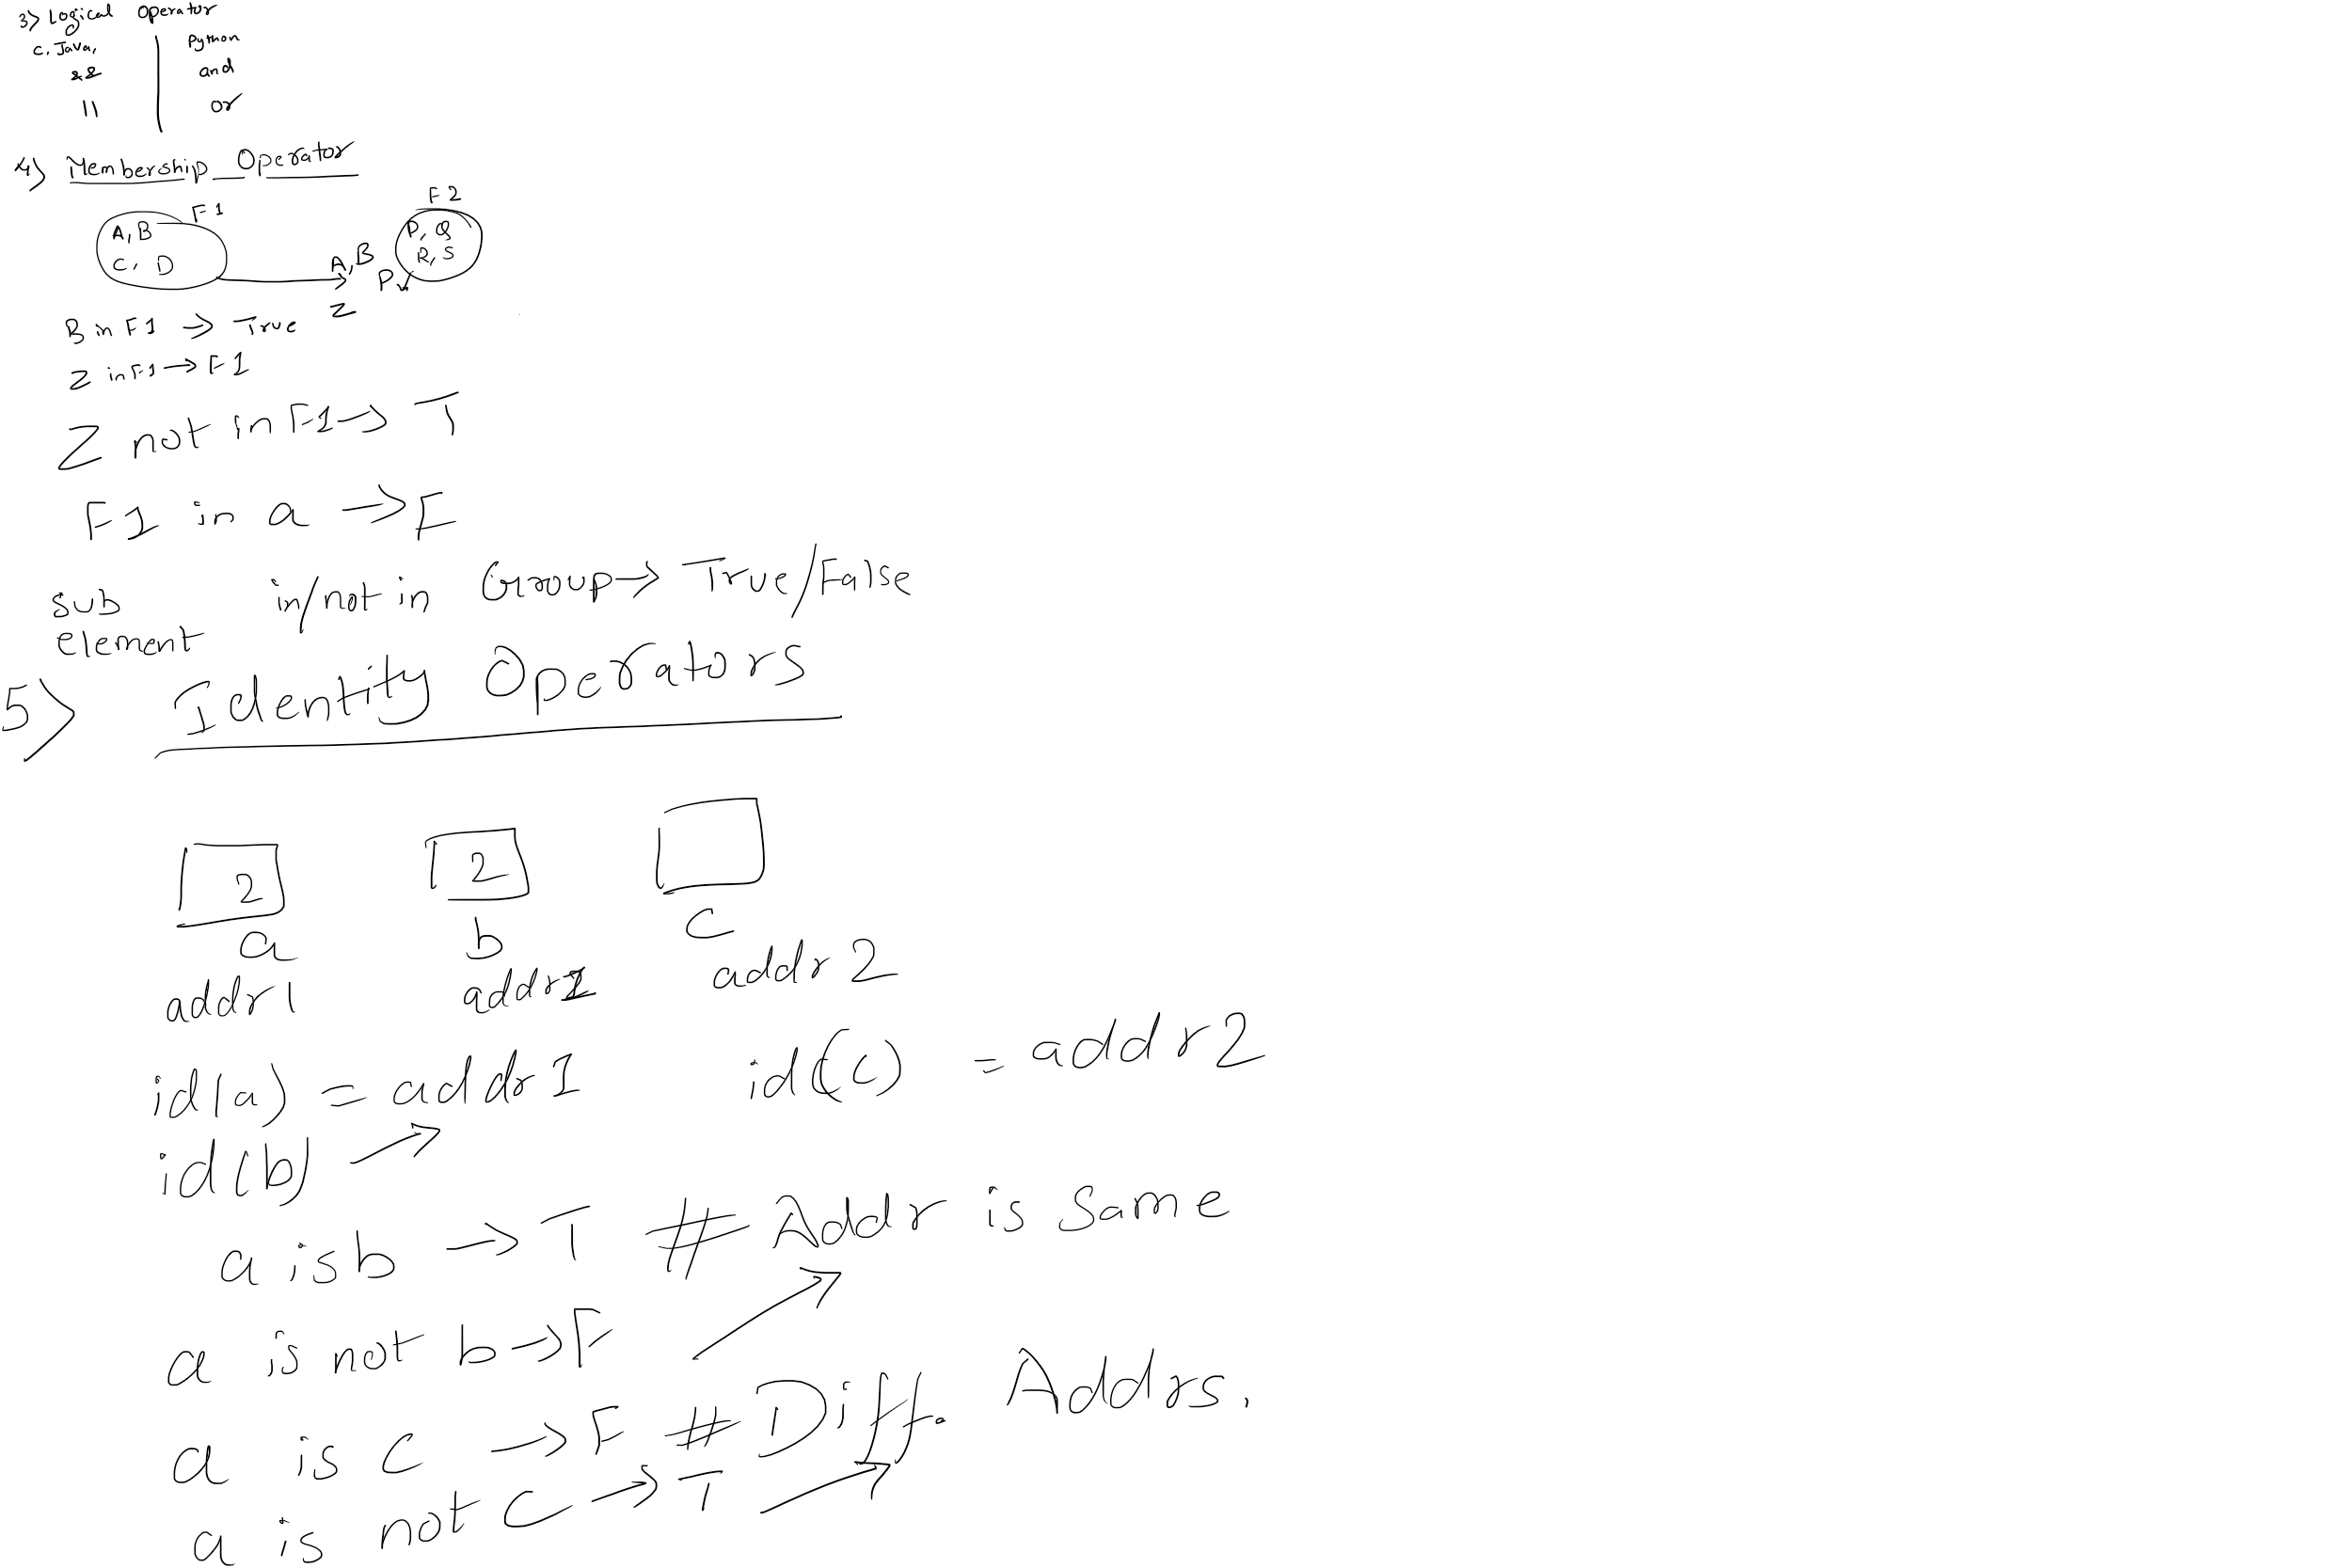 3> Logical Operator
C, Java, Python
&& and
|| or
4) Membership Operator
F1 F2
A, B P, Q
C, D R, S
A, B
P
Z
B in F1 → True
Z in F1 → F1
Z not in F1 → T
F1 in a → F
sub element in/not in Group → True/False
5> Identity Operators
2 2
a b c
addr1 addr1 addr2
id(a) = addr1 id(c) = addr2
id(b) →
a is b → T # Addr is same
a is not b → F
a is c → F # Diff. Addrs.
a is not c → T